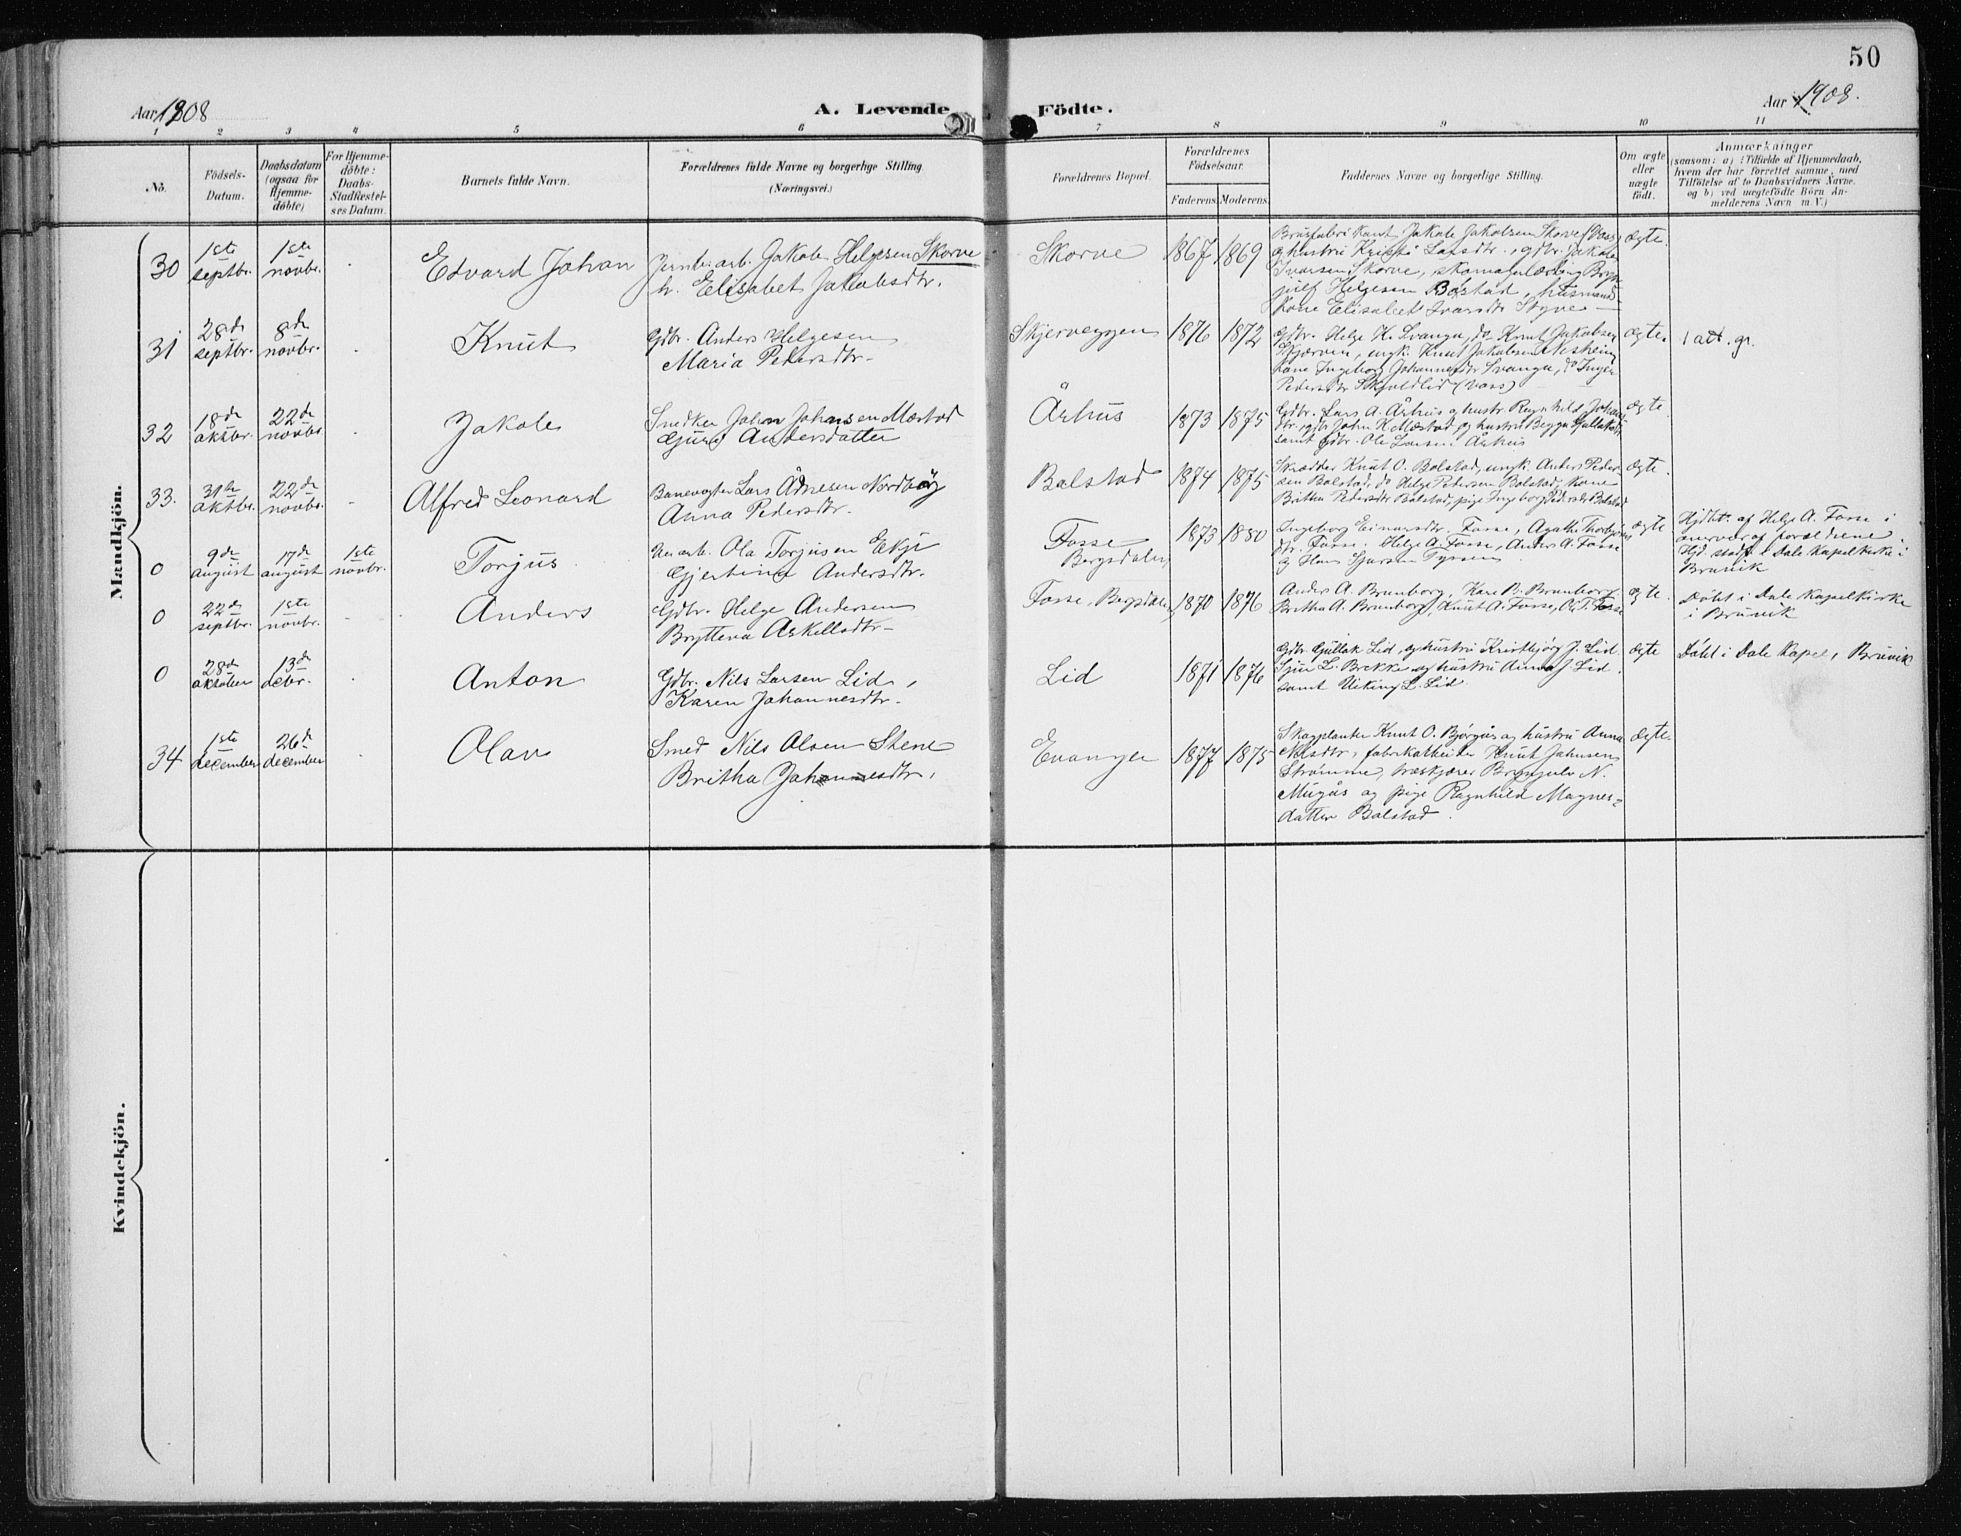 50
Aar 1908
A. Levende Födte.
Aar 1908.
1 2 3 4 5 6 7 8 9 10 11
No.
Födsels-Datum.
Daabsdatum (ogsaa for Hjemme-döbte)
For Hjemme-döbte: Daabs-Stadfæstel-ses Datum.
Barnets fulde Navn.
Forældrenes fulde Navne og borgerlige Stilling (Næringsvei.)
Forældrenes Bopæl.
Forældrenes Födselsaar.
Faderens Moderens
Faddernes Navne og borgerlige Stilling.
Om ægte eller uægte födt.
Anmærkninger
(saasom: a) i Tilfælde af Hjemmedaab,
hvem der har forrettet samme, med
Tilföielse af to Daabsvidners Navne.
og b) ved uægtefödte Börn An-
melderens Navn m. V.)
Mandkjön.
30 1ste septbr. 1ste novbr. - Edvard Johan
Jernb. arb. Jakob Helgesen Skorve
h. Elisabet Jakobsdtr.
Skorve 1867 1869
Jakob Jakobsen Skorve (Voss)
og hustru
Ivarsen Skorve,
Helgesen Bolstad, husmand-
kone Elisabet Ivarsdtr
ægte.
31 28de septbr. 8de novbr. - Knut
Gdbr. Anders Helgesen
Maria Pedersdtr.
Skjerveggen 1876 1872
Gdbr. Helge K. Evanger, do Knut Jakobsen
Skjerven, ungk. Knut Jakobsen Nesheim
kone Ingeborg Johannesdtr Evanger, do Inger
Pedersdtr (Voss)
ægte. 1 att. gr.
32 18de oktbr. 22de novbr - Jakob
Snedker Johan Johansen Mæstad
Guri Andersdatter
Århus 1873 1875
Gdbr. Lars A. Århus og hustr. Ragnhild
dtr. gdbr John K. Mæstad og hustru
samt gdbr. Ole Larsen Århus
ægte.
33. 31te oktbr. 22de novbr. - Alfred Leonard
Banevogter Lars Ådnesen Nordbørg
Anna Pedersdtr.
Bolstad 1874 1875
Skrædder Knut O. Bolstad, ungk. Anders Peder-
sen Bolstad, do Helge Pedersen Bolstad, kone
Britha Pedersdtr Bolstad, pige Ingeborg Pedersdtr Bolstad
ægte.
0 9de august 17de august 1ste novbr. Torjus
Ola Torjusen Ekje
Gjertina Andersdtr.
Fosse Bergsdalen 1873 1880
Ingeborg Einarsdtr. Fosse, Agathe Thorbjørns
dtr. Fosse. Helge A. Fosse, Anders A. Fosse
og Hans Sjursen
ægte
Hjdbt. af Helge A. Fosse i
overvær af forældrene.
Hjd. stadf. i Dale Kapelkirke i
Bruvik
0 22de septbr. 1ste novbr. - Anders
Gdbr. Helge Andersen
Bryttena Askelsdtr
Fosse, Bergsdalen 1870 1876
Anders A. Brunborg, Kari B. Brunborg
Britha A. Brunborg, Knut A. Fosse, O. T. Fosse
ægte.
Døbt i Dale Kapelkirke
i Bruvik
0 28de oktober 13de debr. - Anton
Gdbr. Nils Larsen Lid,
Karen Johannesdtr.
Lid 1871 1876
Gdbr. Gullak Lid, og hustru Kristbjørg J. Lid
Sjur L. Brekke og hustru Anna J. Lid
samt Viking L. Lid.
ægte
Døbt i Dale Kapel, Bruvik
34 1ste december 26de december - Olav
Smed Nils Olsen Stene
Britha Johannesdtr.
Evanger 1877 1875
Skogplanter Knut O. Bjørgås og hustru Anna
Nilsdtr, fabrikarbeider Knut Johnsen
Strømme, træskjærer Brynjulv N.
Mugås og pige Ragnhild Magnes=
datter Bolstad.
ægte.
Kvindekjön.